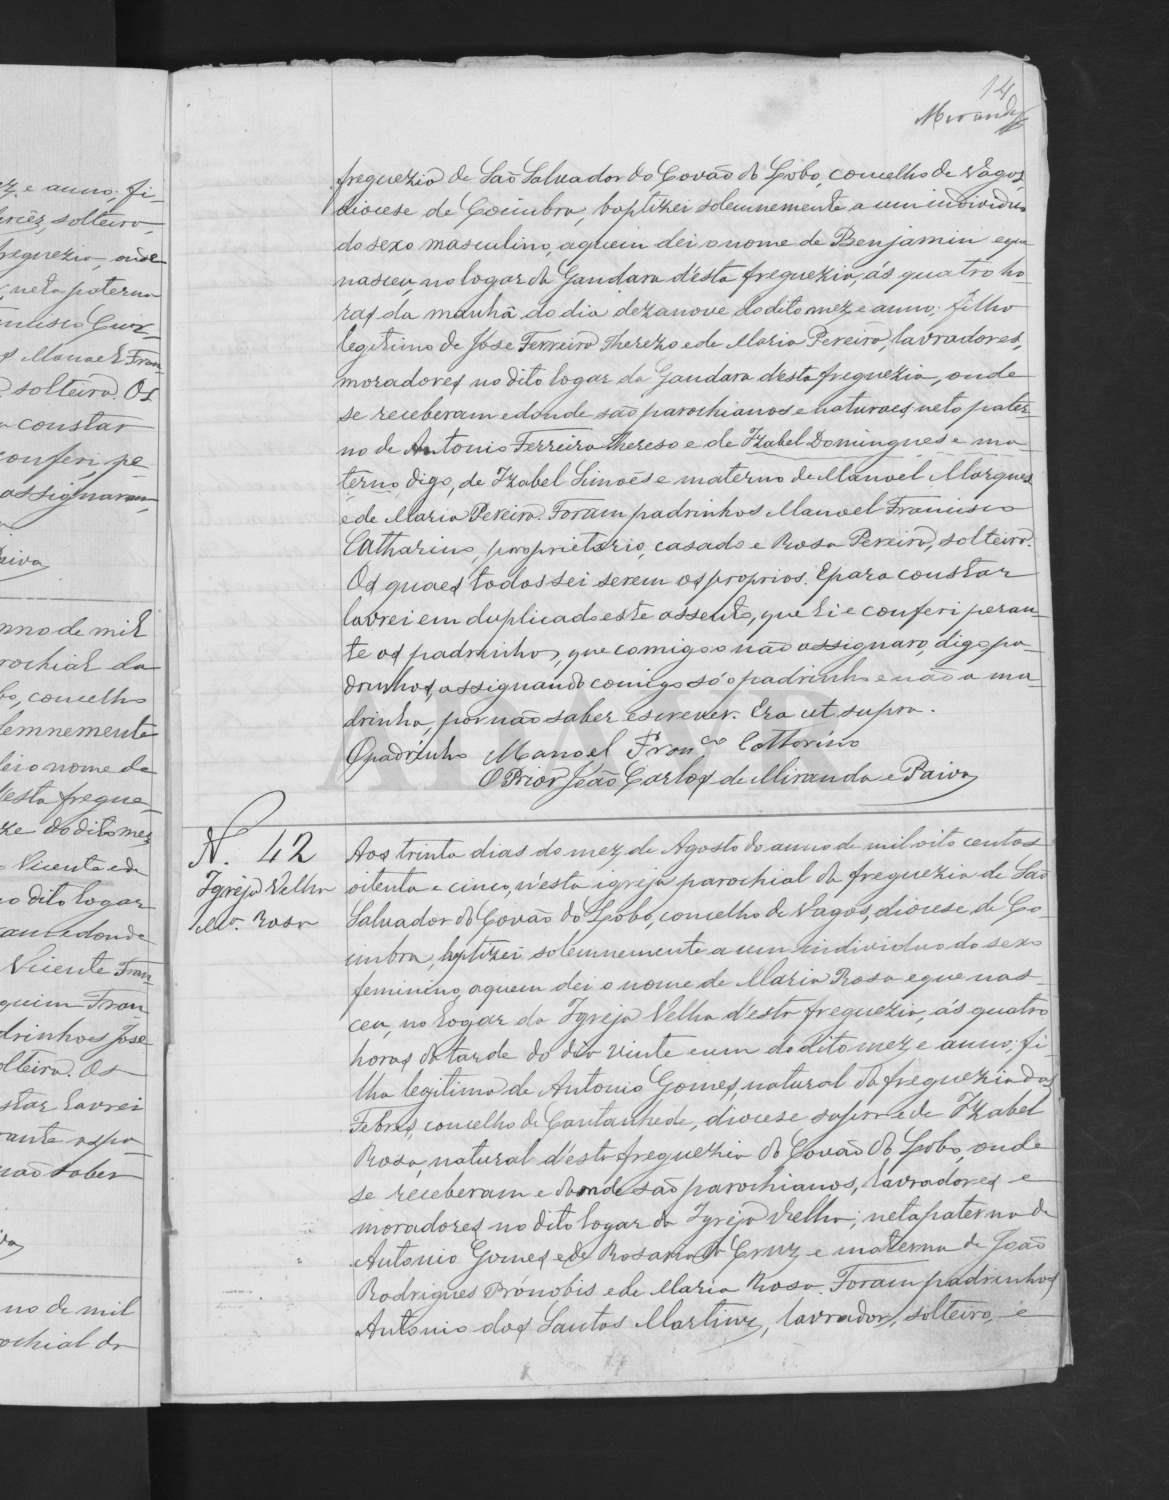 14
Miranda
freguezia de São Salvador do Covão do Lobo, concelho de Vagos,
diocese de Coimbra, baptizei solemnemente a um individuo
do sexo masculino, aquem dei o nome de Benjamin eque
nasceu no logar da Gandara d'esta freguezia, ás quatro ho
ras da manhã do dia dezanove do dito mez e anno; filho
legitimo de José Ferreira Therezo e de Maria Pereira, lavradores,
moradores no dito logar da Gandara d'esta freguezia, onde
se receberam e donde são parochianos e naturaes, neto pater-
no de Antonio Ferreira Thereso e de Izabel Domingues e ma
terno, digo, de Izabel Simões e materno de Manoel Marques
e de Maria Pereira. Foram padrinhos Manoel Francisco
Catharino, proprietario, casado e Rosa Pereira, solteira.
Os quaes todos sei serem os proprios. E para constar
lavrei em duplicado este assento, que li e conferi peran-
te os padrinhos, que comigo o não assignaro, digo, pa-
drinhos, assignando comigo só o padrinho e não a ma-
drinha, por não saber escrever. Era ut supra.
O padrinho Manoel Fran.co Cattorino
O Prior João Carlos de Miranda e Paiva
N. 42
Igreja Velha
M.a Rosa
Aos trinta dias do mez de Agosto do anno de mil oito centos
oitenta e cinco, n'esta igreja parochial da freguezia de São
Salvador do Covão do Lobo, concelho de Vagos, diocese de Co-
imbra, baptizei solemnemente a um individuo do sexo
feminino, aquem dei o nome de Maria Rosa e que nas-
ceu, no logar da Igreja Velha d'esta freguezia, ás quatro
horas da tarde do dia vinte e um do dito mez e anno; fi-
lha legitima de Antonio Gomes, natural da freguezia das
Febres, concelho de Cantanhede, diocese supra e de Izabel
Rosa, natural d'esta freguezia do Covão do Lobo, onde
se receberam e donde são parochianos, lavradores e
moradores no dito logar da Igreja Velha; neta paterna de
Antonio Gomes e de Rosaria da Cruz e materna de João
Rodrigues Prónobis e de Maria Rosa. Foram padrinhos
Antonio dos Santos Martins, lavrador, solteiro, e